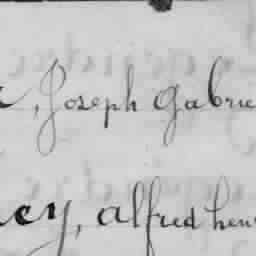 , Joseph Gabrie
ey, alfred hen